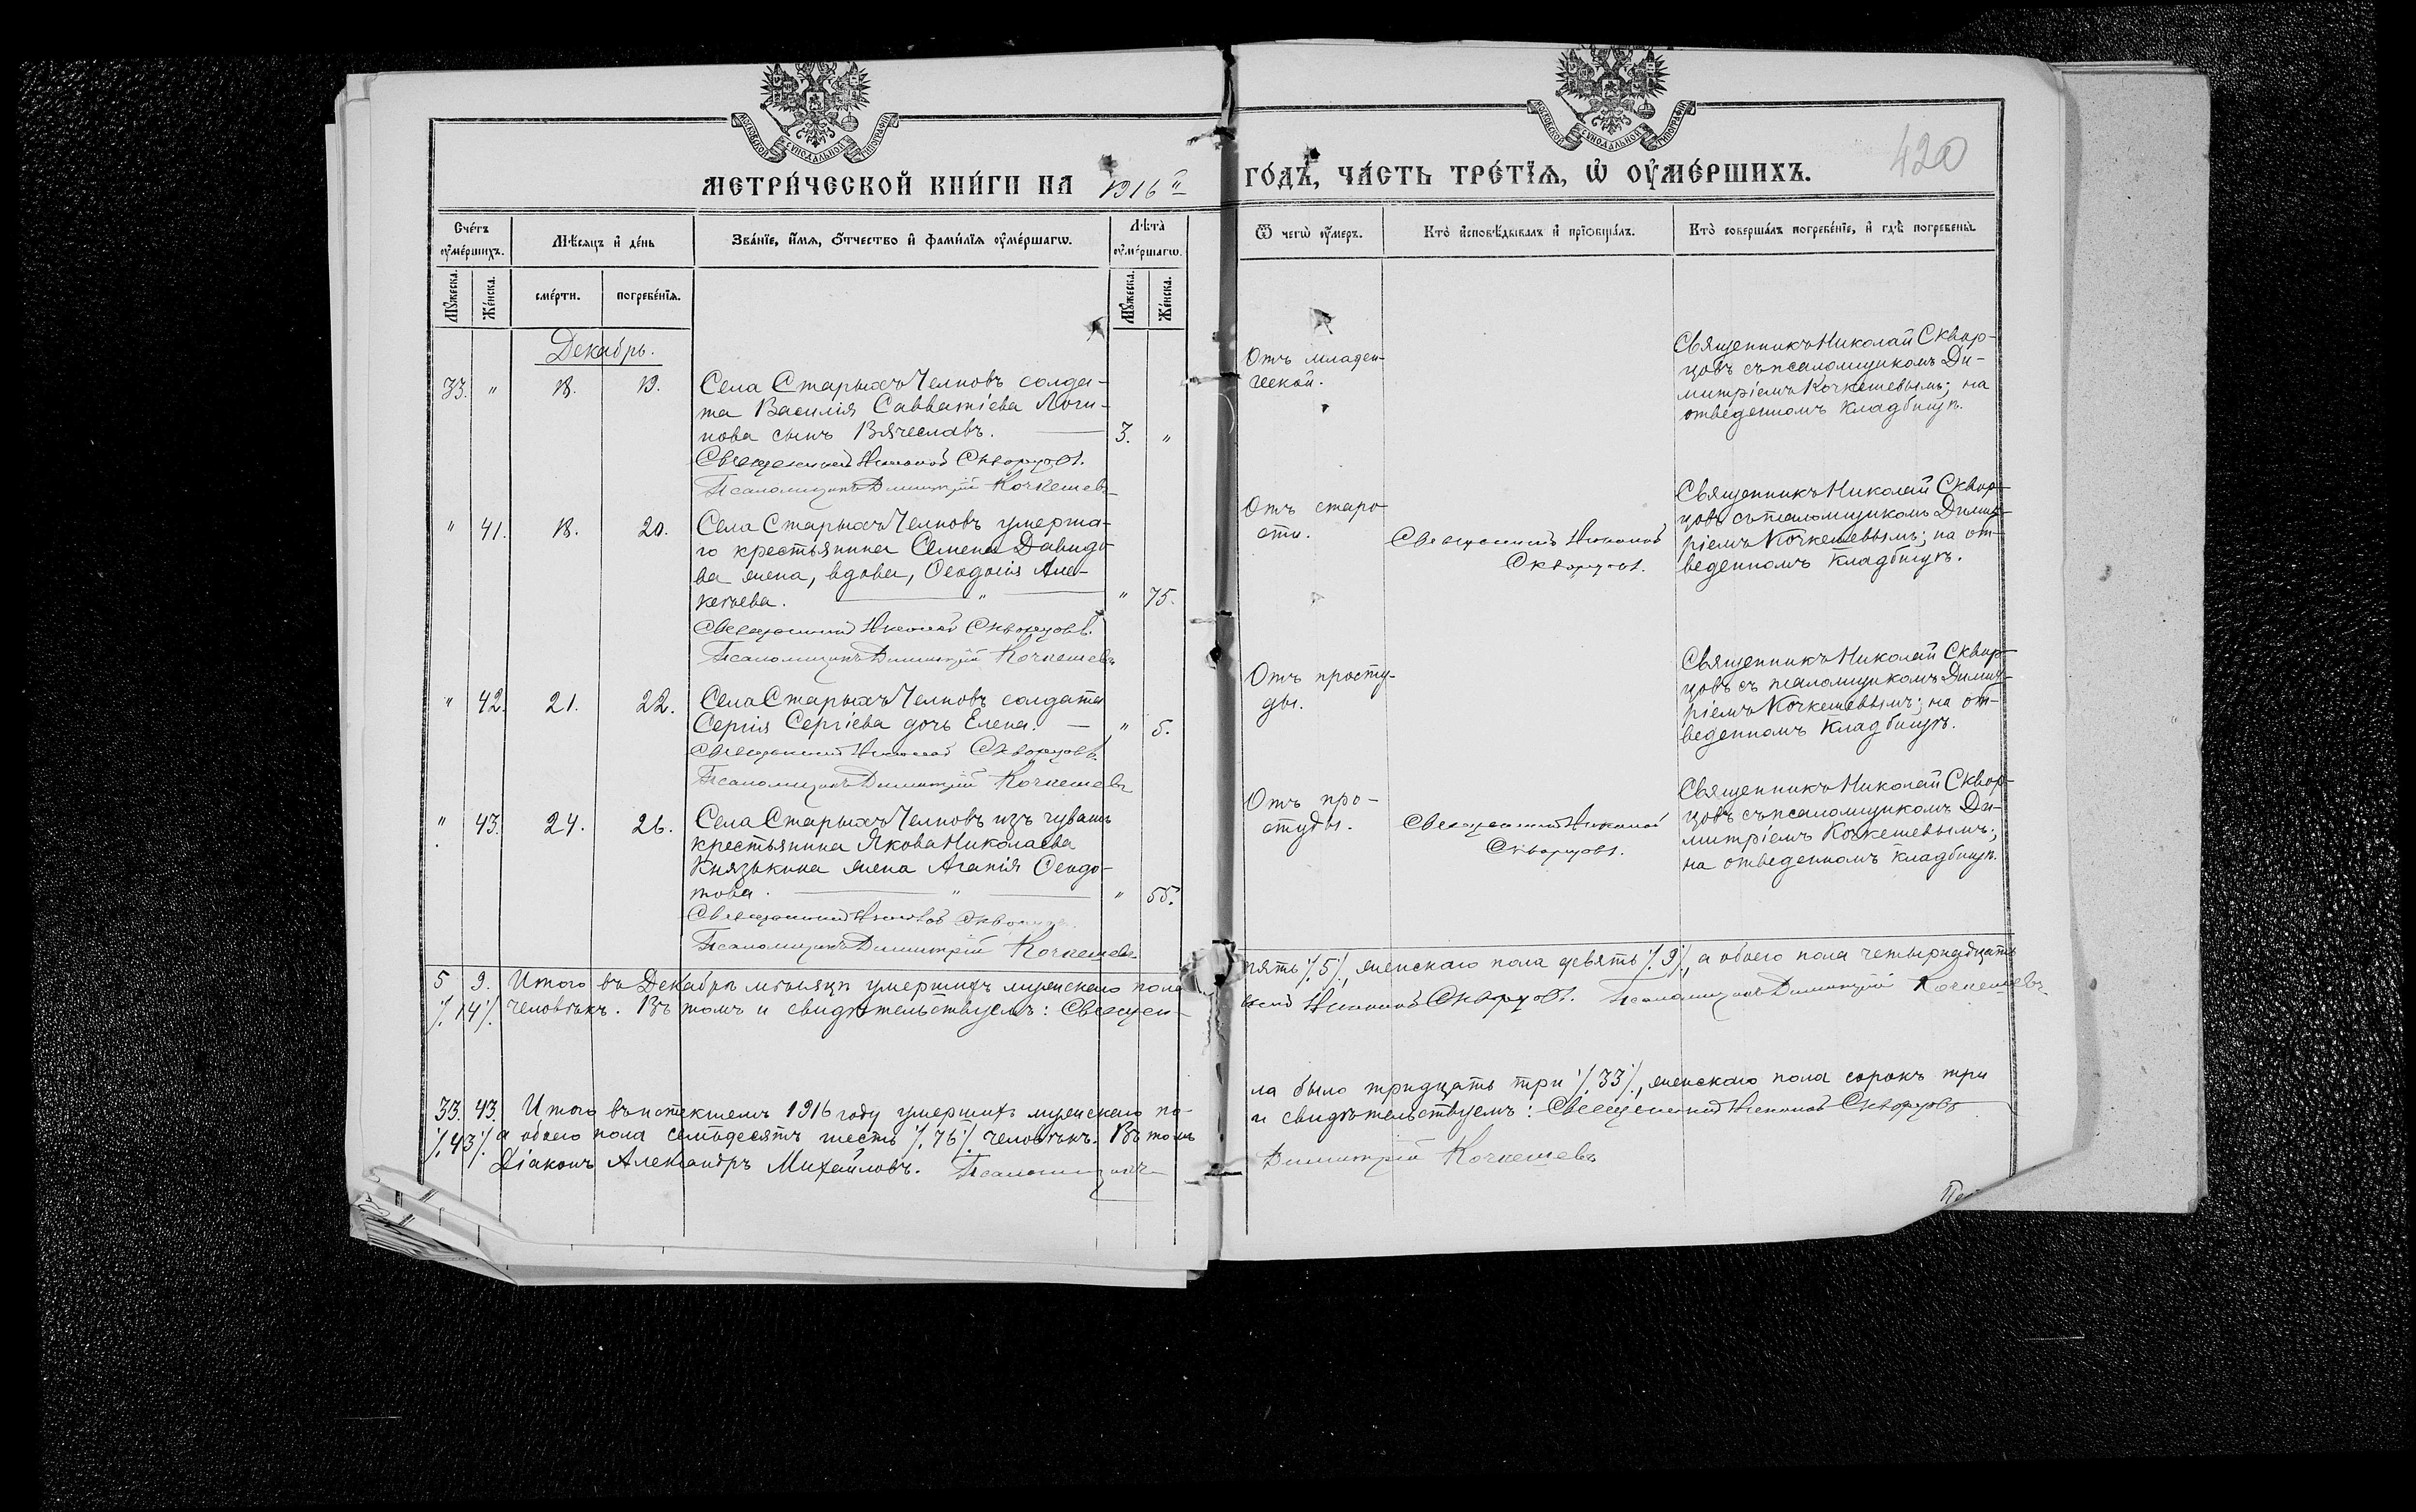 МОСКОВСКОЙ СѴНОДАЛЬНОЙ ТИПОГРАФІИ
МОСКОВСКОЙ СѴНОДАЛЬНОЙ ТИПОГРАФІИ
МЕТРИ́ЧЕСКОЙ КНИ́ГИ НА 1916 й
ГО́ДЪ, ЧА́СТЬ ТРЕ́ТІѦ, Ѡ ОУ҆МЕ́РШИХЪ.
420
Сче́тъ оу҆ме́ршихъ.
Мѣ́сяцъ и҆ де́нь
Зва́нїе, и҆́мѧ, ѻ҆́тчество и҆ фами́лїѧ оу҆ме́ршагѡ.
Лѣ́та оу҆ме́ршагѡ.
Ѿ чегѡ̀ оу҆́меръ.
Кто̀ и҆сповѣ́дывалъ и҆ прїѡбща́лъ.
Кто̀ соверша́лъ погребе́нїе, и҆ гдѣ̀ погребены̀.
Мꙋ́жеска. Же́нска.
сме́рти. погребе́нїѧ.
Мꙋ́жеска. Же́нска.
Декабрь.
33. " 18. 19. Села Старыхъ Челновъ солда-
та Василія Савватіева Логи-
нова сынъ Вячеславъ. 3. "
Священникъ Николай Скворцовъ.
Псаломщикъ Димитрій Кочкешевъ
Отъ младен-
ческой.
Священникъ Николай Сквор-
цовъ съ псаломщикомъ Ди-
митріемъ Кочкешевымъ; на
отведенномъ кладбищѣ.
" 41. 18. 20. Села Старыхъ Челновъ умерша-
го крестьянина Семена Давидо-
ва жена, вдова, Ѳеодосія Але-
ксѣева. " " 75.
Священникъ Николай Скворцовъ.
Псаломщикъ Димитрій Кочкешевъ
Отъ старо-
сти.
Священникъ Николай
Скворцовъ.
Священникъ Николай Сквор-
цовъ съ псаломщикомъ Димит-
ріемъ Кочкешевымъ; на от-
веденномъ кладбищѣ.
" 42. 21. 22. Села Старыхъ Челновъ солдата
Сергія Сергіева дочь Елена. " 5.
Священникъ Николай Скворцовъ.
Псаломщикъ Димитрій Кочкешевъ
Отъ просту-
ды.
Священникъ Николай Сквор-
цовъ съ псаломщикомъ Димит-
ріемъ Кочкешевымъ; на от-
веденномъ кладбищѣ.
" 43. 24. 26. Села Старыхъ Челновъ изъ чувашъ
крестьянина Якова Николаева
Князькина жена Агапія Ѳеодо-
това. " " 55.
Священникъ Николай Скворцовъ
Псаломщикъ Димитрій Кочкешевъ
Отъ про-
студы.
Священникъ Николай
Скворцовъ.
Священникъ Николай Сквор-
цовъ съ псаломщикомъ Ди-
митріемъ Кочкешевымъ;
на отведенномъ кладбищѣ.
5 9. Итого въ Декабрѣ мѣсяцѣ умершихъ мужскаго пола
пять ./.5./., женскаго пола девять ./.9./., а обоего пола четырнадцать
./.14./. человѣкъ. Въ томъ и свидѣтельствуемъ: Священ-
никъ Николай Скворцовъ. Псаломщикъ Димитрій Кочкешевъ
33. 43. Итого въ истекшемъ 1916 году умершихъ мужскаго по-
ла было тридцать три ./.33./., женскаго пола сорокъ три
./.43./. а обоего пола семьдесятъ шесть ./.76./. человѣкъ. Въ томъ
и свидѣтельствуемъ: Священникъ Николай Скворцовъ
Діаконъ Александръ Михайловъ. Псаломщикъ
Димитрій Кочкешевъ